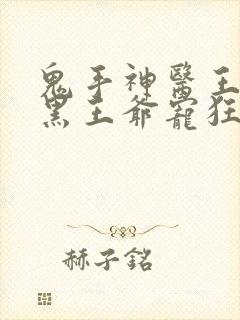 鬼手神醫王
黑王爺寵狂
赫子銘